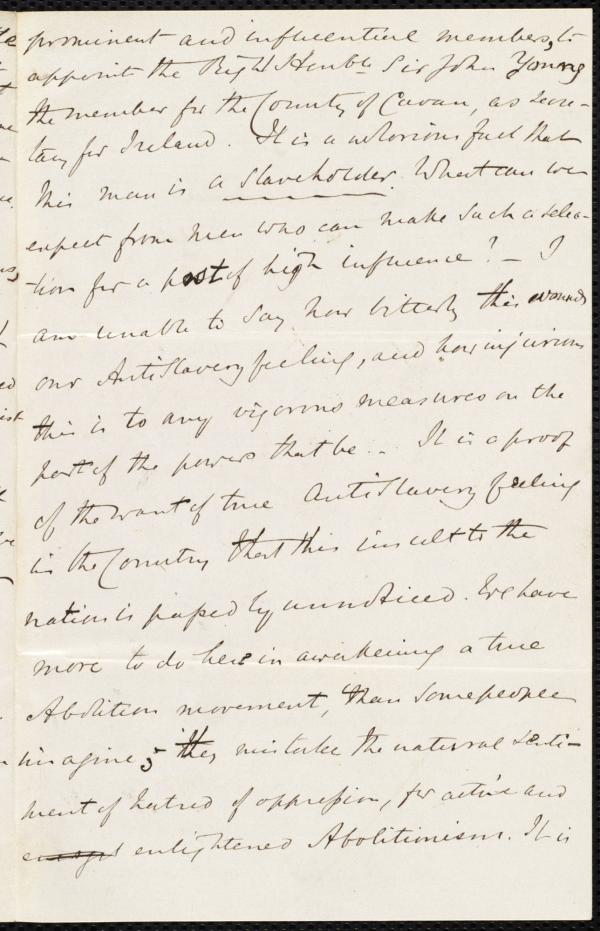 prominent and influential members, to
appoint the Right Honble Sir John Young
the member for the County of Cavan, as secre-
tary for Ireland. It is a notorious fact that
this man is a slaveholder. What can we
expect from men who can make such a selec-
-tion for a post of high influence? - I
am unable to say how bitterly this wounds
our AntiSlavery feeling, and how injurious
this is to any vigorous measures on the
part of the powers that be. - It is a proof
of the want of true AntiSlavery feeling
in the Country that this insult to the
nation is passed by unnoticed. We have
more to do here in awakening a true
Abolition movement, than some people
imagine; they mistake the natural senti-
ment of hatred of oppression, for active and
enlightened Abolitionism. It is